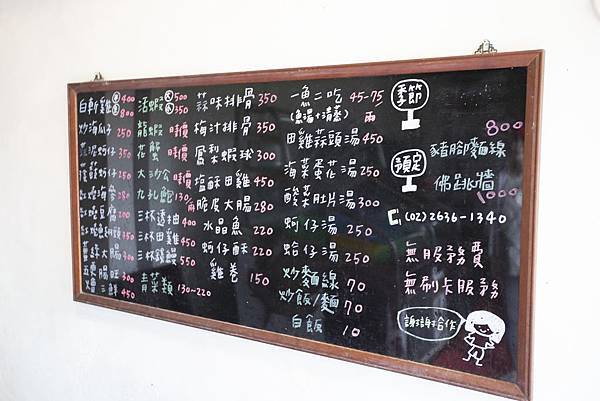 白斬雞 半400 全800
炒海瓜子 250
蚵仔 350
蔭豉蚵仔 250
紅燒海參 280
紅燒豆腐 200
紅燒魚 350
薑絲大腸 300
五更腸旺 300
三鮮 450
活蝦 大500 小350
龍蝦 時價
花蟹 時價
大沙公 時價
九孔鮑 130/兩
三杯透抽 400
三杯田雞 450
三杯 550
青菜類 130~220
蒜味排骨 350
梅汁排骨 350
鳳梨蝦球 300
塩酥田雞 450
脆皮大腸 280
水晶魚 220
蚵仔酥 220
雞卷 150
一魚二吃 45-75
(魚湯+清蒸) 兩
田雞蒜頭湯 450
海菜蛋花湯 250
酸菜肚片湯 300
蚵仔湯 250
蛤仔湯 250
炒麵線 70
炒飯/麵 70
白飯 10
季節
800
預定 豬腳麵線
佛跳牆
1000
(02)2636-1340
無服務費
無刷卡服務
謝謝合作